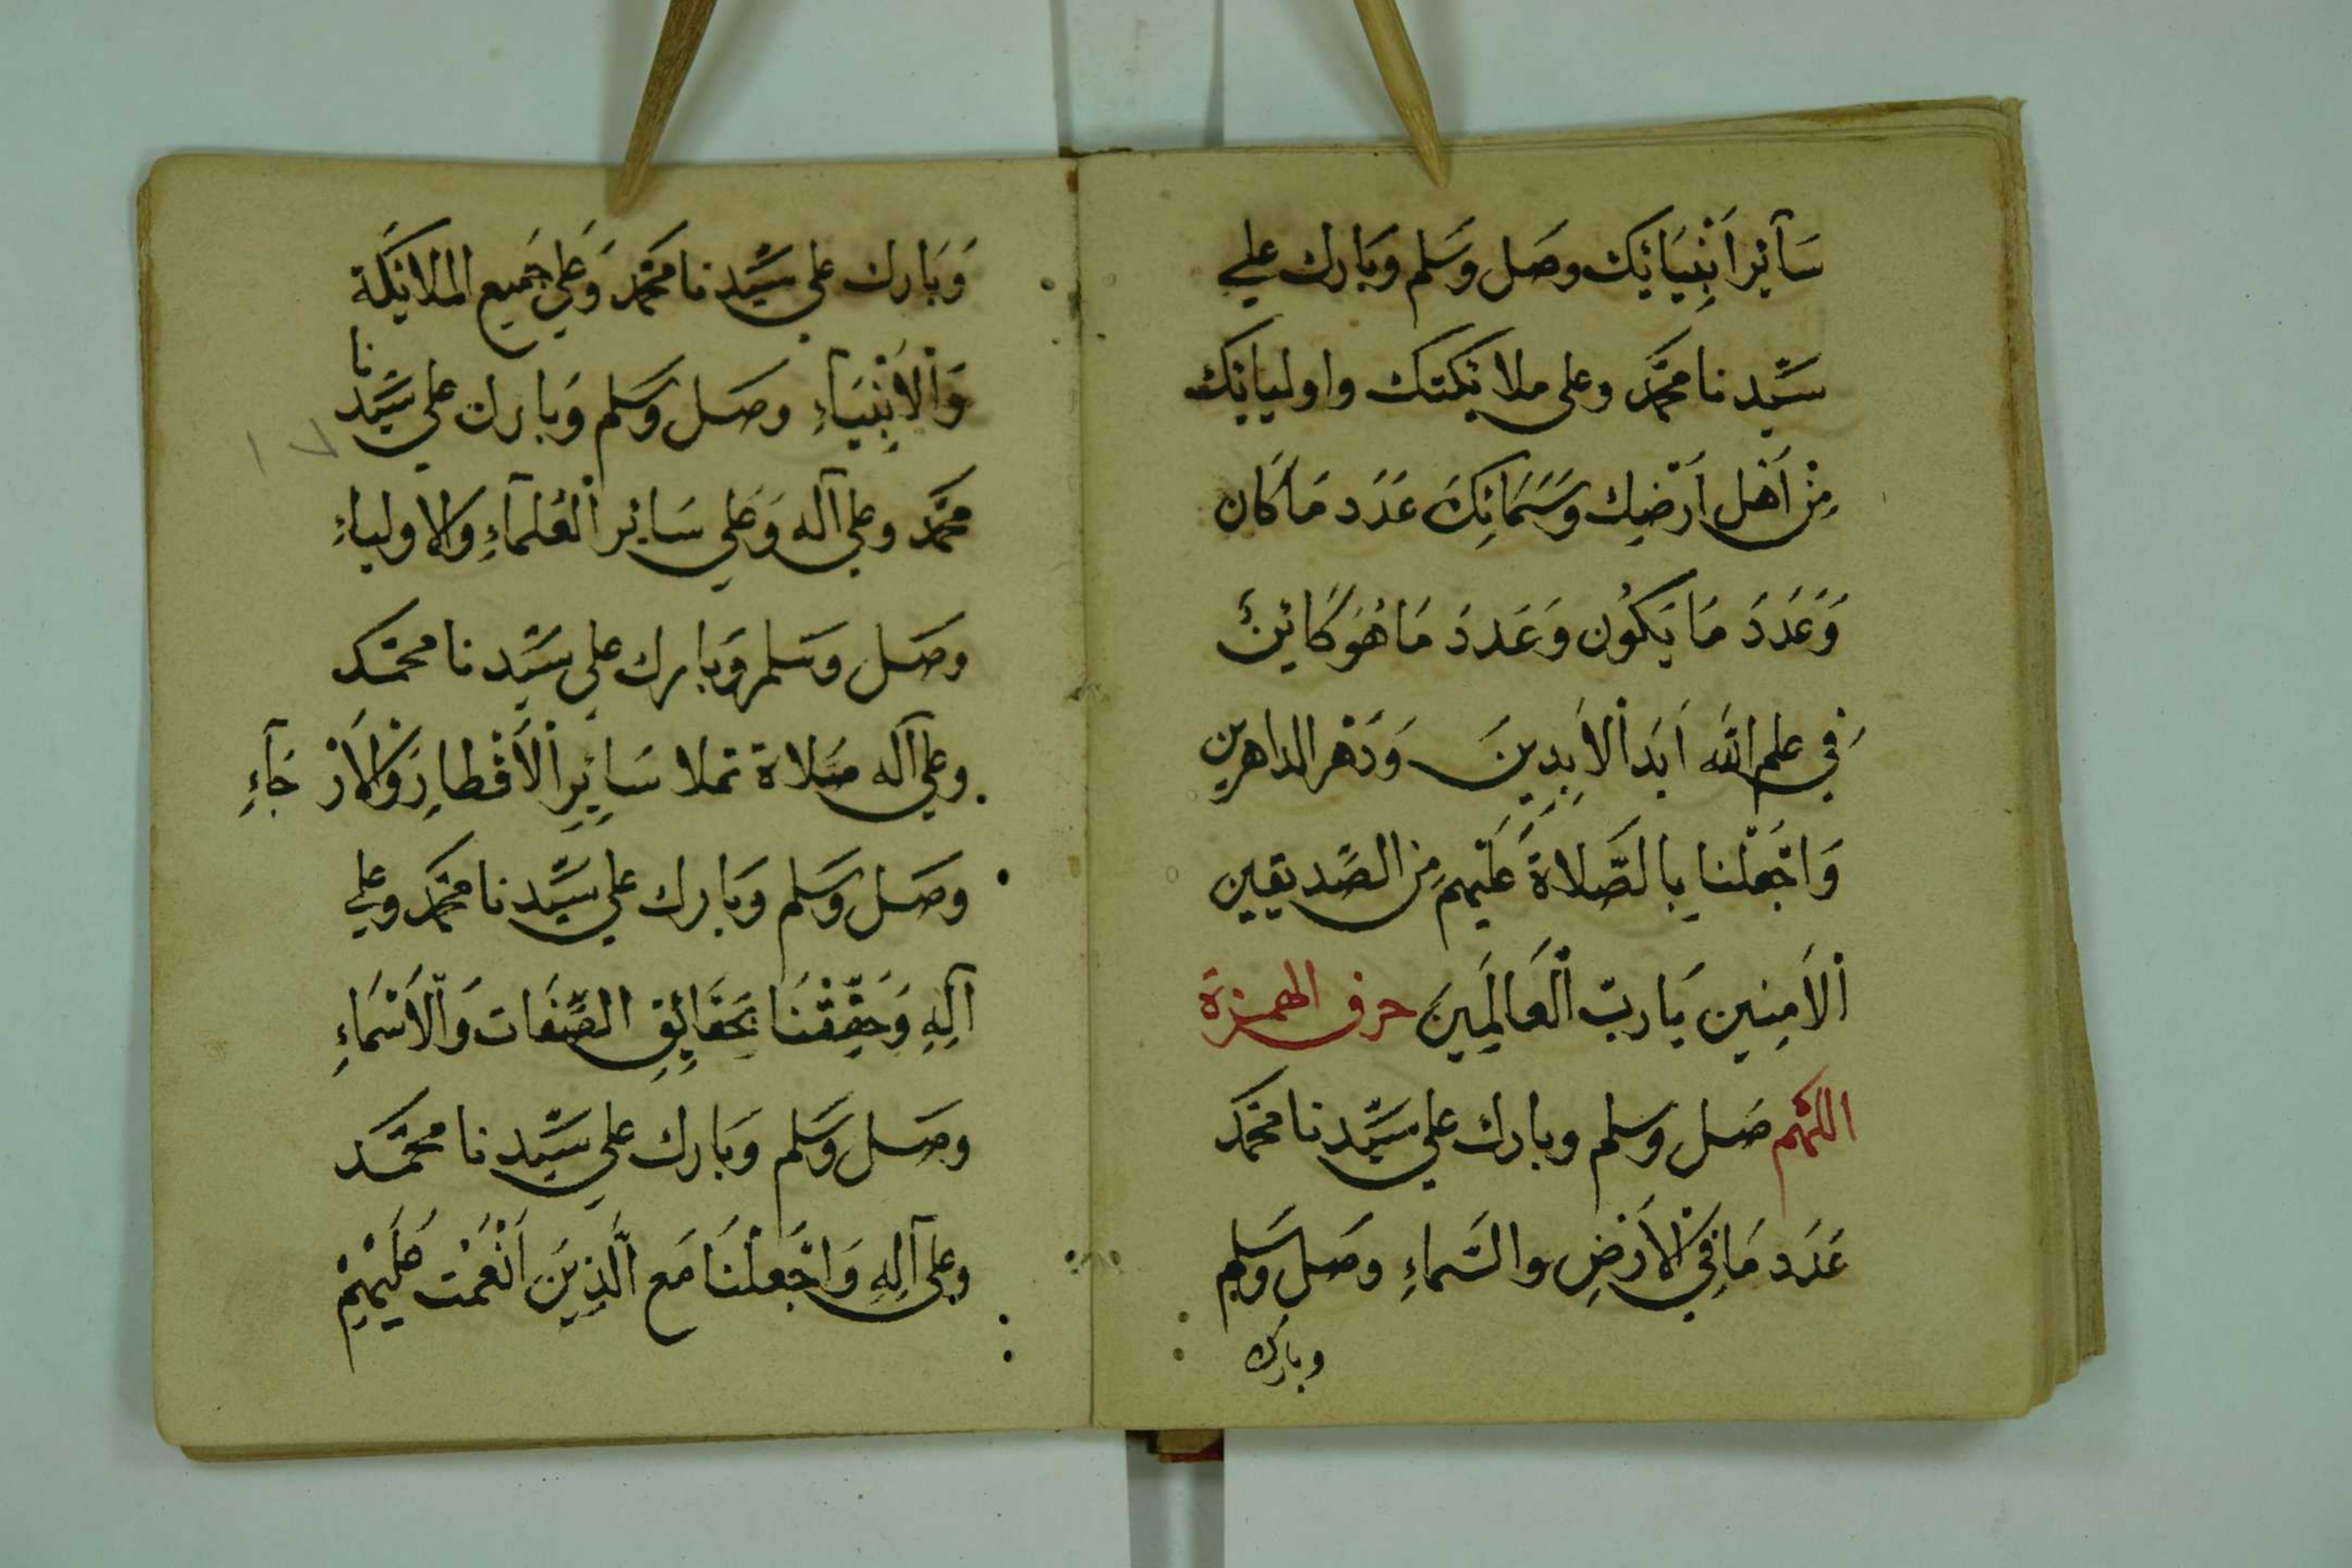 سَآئِر اَنْبِيَائِك وصَل وَسَلم وَبَارك علي
سَيِّدنا محَمَّد وعلى ملائكتك واوليائك
مِنْ اَهْل اَرْضِك وَسَمَائِكَ عَدَد مَا كَان
وَعَدَدَ مَا يَكُون وَعَددَ مَا هُوَ كَائِنٌ
فِي علم الله اَبَد اْلاَبِدِينَ وَدَهْر الداهرين
وَاجْعَلْنا بِالصَّلاة عَلَيْهِمِ مِن الصَّديقين
اْلاَمِنِين يَا ربّ الْعَالَمِينَ حرف الهمزة
اللهم صَل وسلم وبارك علي سَيِّدنا محَمَّد
عَدَد مَا فِي اْلاَرْضِ والسَّماءِ وصَل وَسَلم
وبارك
وَبَارك علي سَيِّدنا محَمَّد وَعَلي جَميع الملائكَة
وَاْلاَنْبِيَاءِ وصَل وَسَلم وَبارك علي سَيِّدنا
محَمَّد وعلى آله وَعَلي سَائر الْعُلَمآءِ والاولياءِ
وصَل وَسَلم وَبارك علي سَيِّدنا محمَّد
وعلي آله صَلاة تملا سَائِرِ اْلاَقْطارِ وَاْلاَرْجَآءِ
وصَل وَسَلم وَبَارك علي سَيِّدنا محَمَّد وعلي
آلِهِ وَحَقِّقْنَا بِحَقَائِقِ الصِّفَات وَاْلاَسْمَاءِ
وصَل وَسَلم وَبَارك علي سَيِّدنا محمَّد
وعلى آلِهِ وَاجْعَلْنَا مَع الَّذِيَن اَنْعَمْت عَلَيْهِمْ
١٧